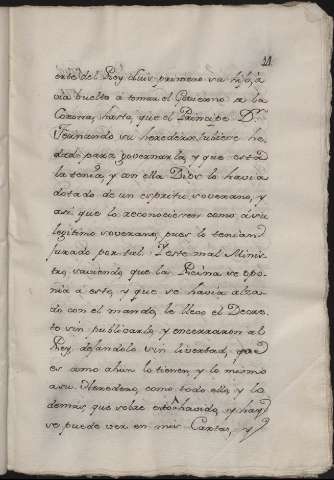 21
erte del Rey Luis primero su hijo, á
via buelto á tomar el Govierno de la
Corona, hasta, que el Principe Dn.
Fernando su heredero, tubiese he-
dad para governarla, y que esta
la tenia, y con ella Dios lo havia
dotado de un espiritu soverano, y
asi que lo reconociesen como á su
legitimo soverano, pues lo tenian
jurado por tal. Y este mal Minis-
tro, saviendo que la Reina se opo-
nia á esto, y que se havia alza-
do con el mando, le llevo el Decre-
to sin publicarlo, y encerraron al
Rey, dejandolo sin livertad,
es amo ahun lo tienen, y lo mismo
a su Heredero, como todo ello, y lo
demas que sobre esto ha havido, y hay
se puede ver en mis Cartas, y